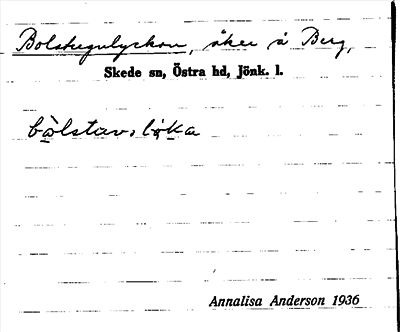 Bolstegulyckan, åker å Berg,
Skede sn, Östra hd, Jönk. l.
bòlstavslöka
Annalisa Anderson 1936